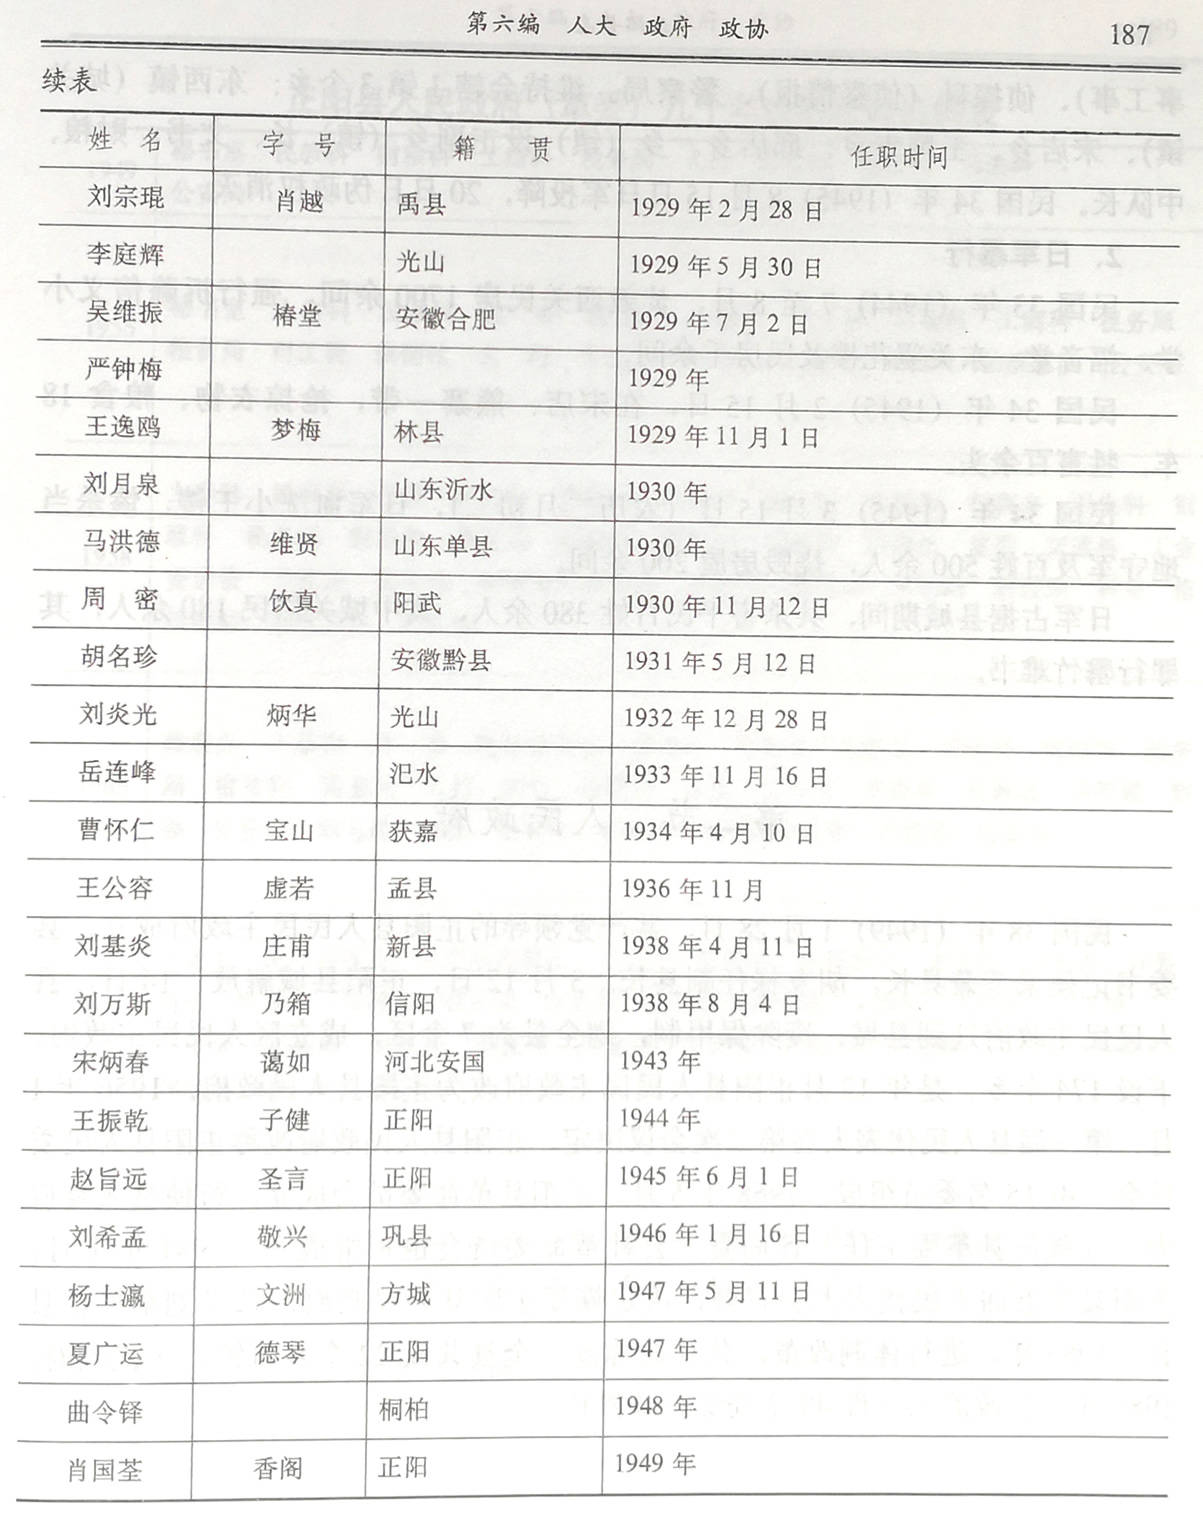 第六编 人大 政府 政协 187
续表
姓 名 字 号 籍 贯 任职时间
刘宗琨 肖越 禹县 1929 年 2 月 28 日
李庭辉 光山 1929 年 5 月 30 日
吴维振 椿堂 安徽合肥 1929 年 7 月 2 日
严钟梅 1929 年
王逸鸥 梦梅 林县 1929 年 11 月 1 日
刘月泉 山东沂水 1930 年
马洪德 维贤 山东单县 1930 年
周 密 饮真 阳武 1930 年 11 月 12 日
胡名珍 安徽黔县 1931 年 5 月 12 日
刘炎光 炳华 光山 1932 年 12 月 28 日
岳连峰 汜水 1933 年 11 月 16 日
曹怀仁 宝山 获嘉 1934 年 4 月 10 日
王公容 虚若 孟县 1936 年 11 月
刘基炎 庄甫 新县 1938 年 4 月 11 日
刘万斯 乃箱 信阳 1938 年 8 月 4 日
宋炳春 蔼如 河北安国 1943 年
王振乾 子健 正阳 1944 年
赵旨远 圣言 正阳 1945 年 6 月 1 日
刘希孟 敬兴 巩县 1946 年 1 月 16 日
杨士瀛 文洲 方城 1947 年 5 月 11 日
夏广运 德琴 正阳 1947 年
曲令铎 桐柏 1948 年
肖国荃 香阁 正阳 1949 年